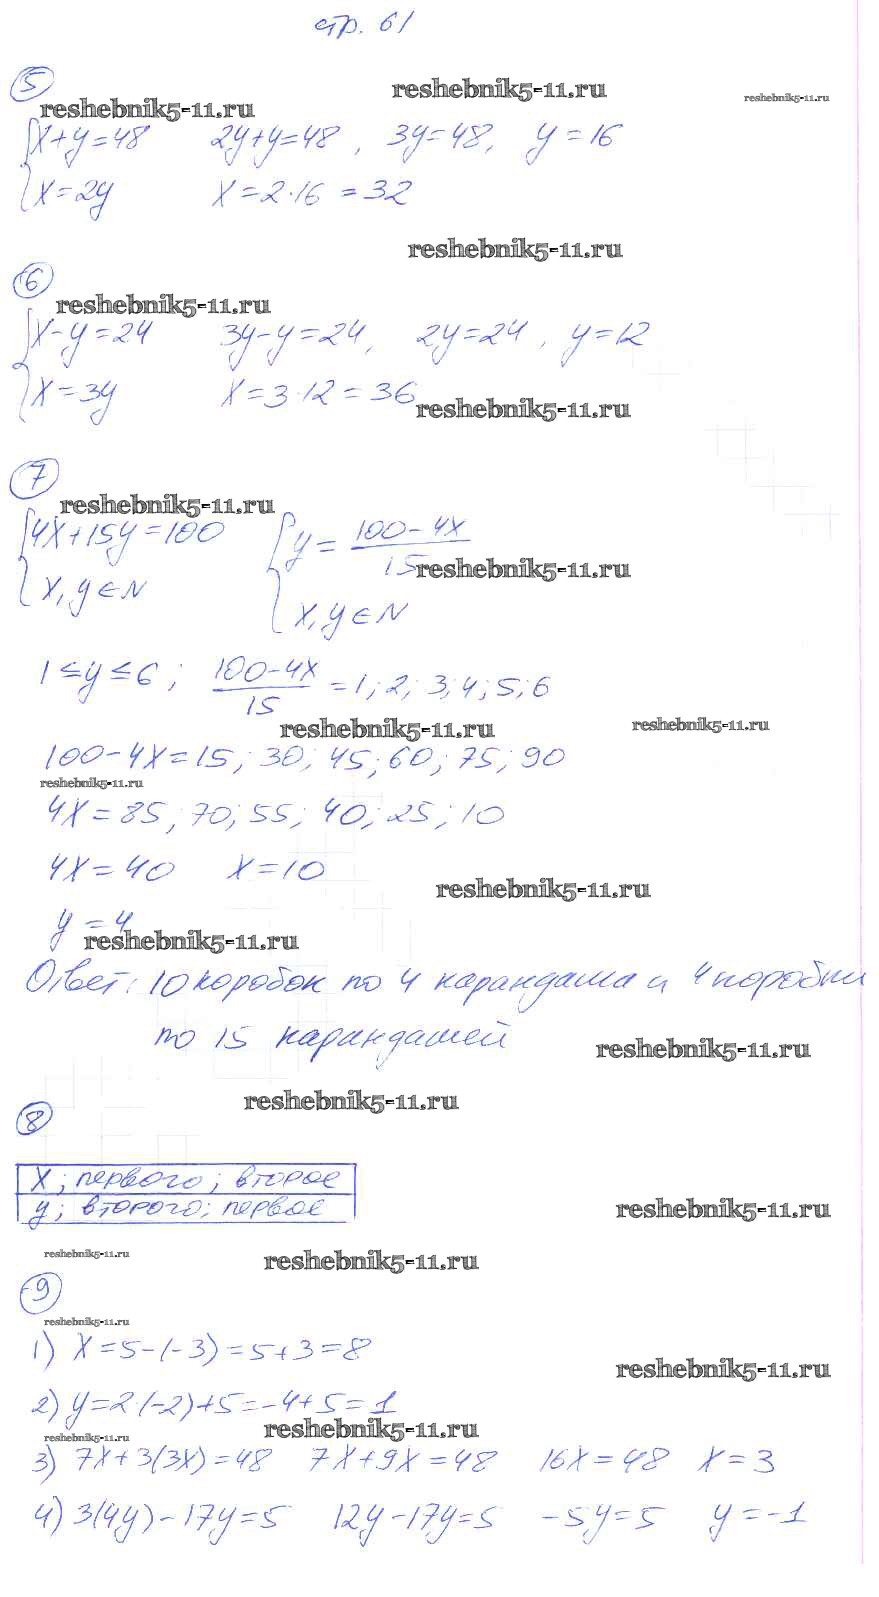 стр. 61
5
reshebnik5-11.ru
reshebnik5-11.ru
reshebnik5-11.ru
x+y=48 2y+y=48, 3y=48, y=16
x=2y x=2·16=32
reshebnik5-11.ru
6
reshebnik5-11.ru
x-y=24 3y-y=24, 2y=24, y=12
x=3y x=3·12=36
reshebnik5-11.ru
7
reshebnik5-11.ru
4x+15y=100 y=(100-4x)/15
reshebnik5-11.ru
x,y∈N x,y∈N
1≤y≤6; (100-4x)/15=1; 2; 3; 4; 5; 6
reshebnik5-11.ru
reshebnik5-11.ru
100-4x=15; 30; 45; 60; 75; 90
reshebnik5-11.ru
4x=85; 70; 55; 40; 25; 10
4x=40 x=10
reshebnik5-11.ru
y=4
reshebnik5-11.ru
Ответ: 10 коробок по 4 карандаша и 4 коробки
по 15 карандашей
reshebnik5-11.ru
reshebnik5-11.ru
8
x; первого; второе
y; второго; первое
reshebnik5-11.ru
reshebnik5-11.ru
reshebnik5-11.ru
9
reshebnik5-11.ru
1) x=5-(-3)=5+3=8
reshebnik5-11.ru
2) y=2(-2)+5=-4+5=1
reshebnik5-11.ru
reshebnik5-11.ru
3) 7x+3(3x)=48 7x+9x=48 16x=48 x=3
4) 3(4y)-17y=5 12y-17y=5 -5y=5 y=-1